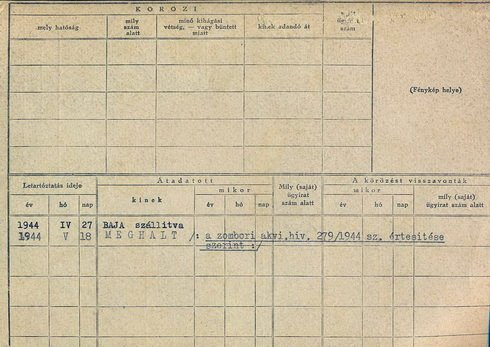 KÖRÖZI
mely hatóság
mily szám alatt
minő kihágási vétség, — vagy büntett miatt
kinek adandó át
szám
(Fénykép helye)
Letartóztatás ideje
Átadatott
Mily (saját) ügyirat szám alatt
A körözést visszavonták
kinek
mikor
mikor
mily (saját) ügyirat szám alatt
év hó nap
év hó nap
év hó nap
1944 IV 27 BAJA szállitva
1944 V 18 MEGHALT /: a zombori akvi,hiv, 279/1944 sz, értesitése
szerint :/